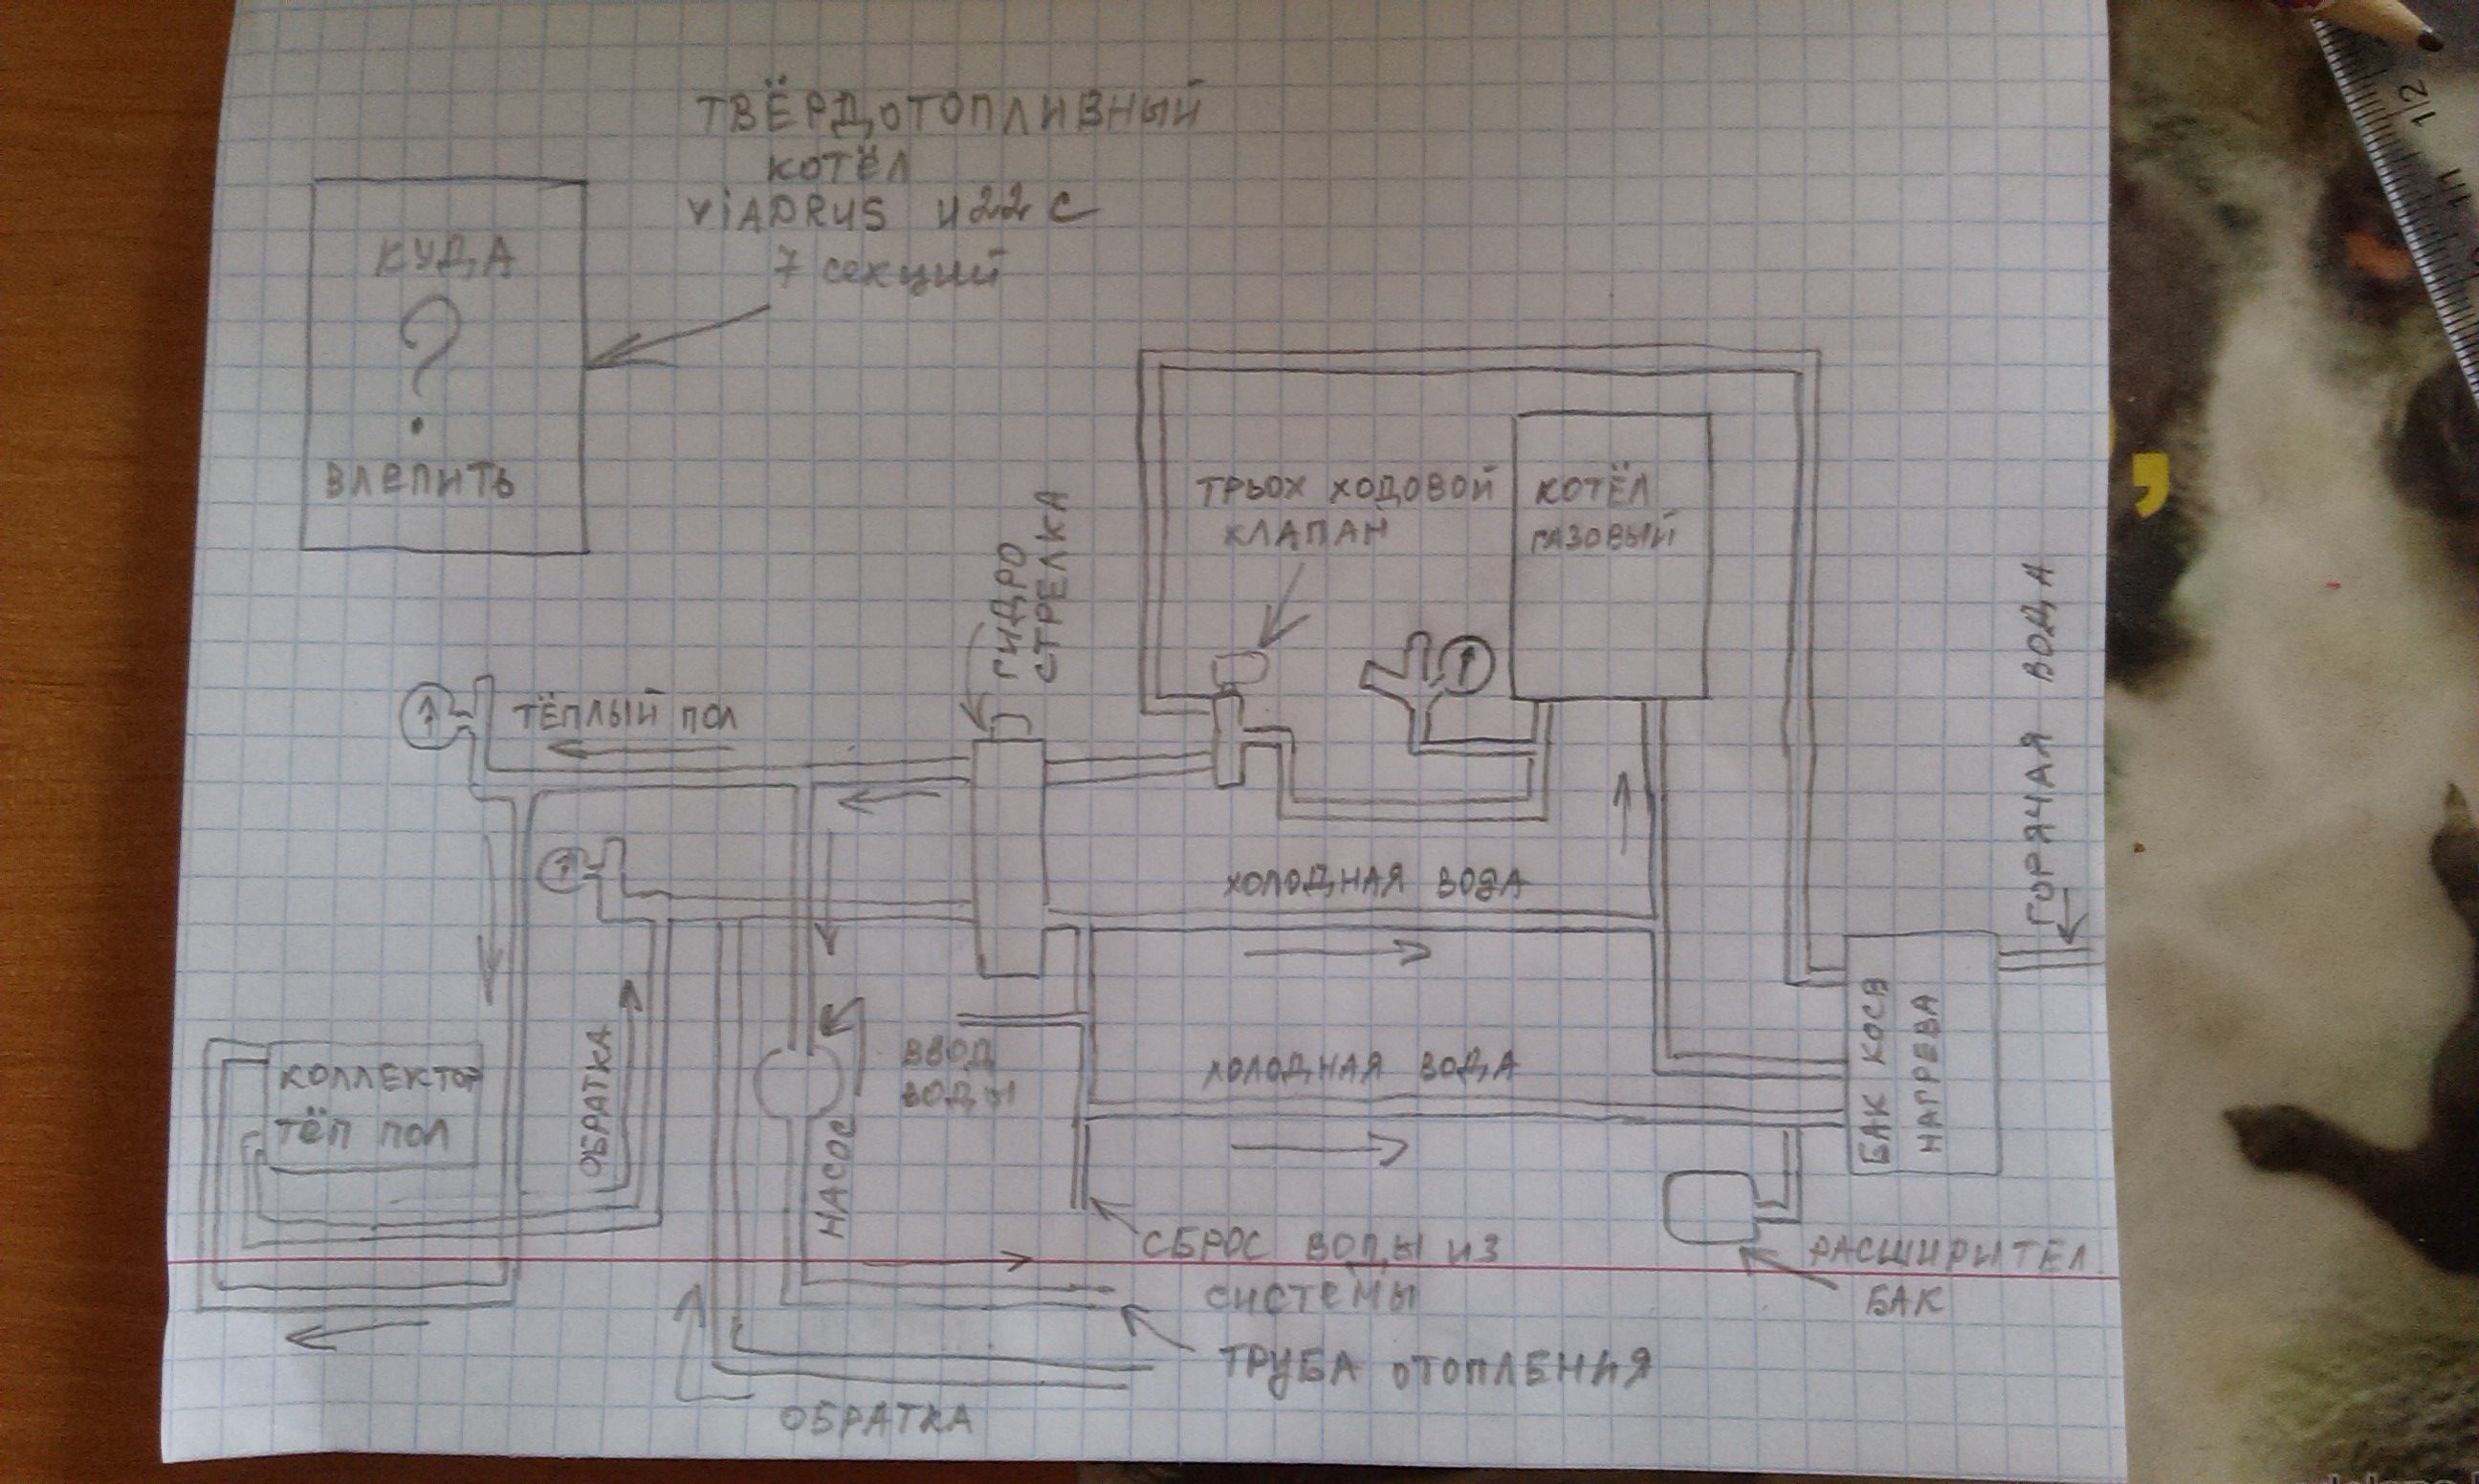 ТВЁРДОТОПЛИВНЫЙ
КОТЁЛ
ViADRUS U22 C
7 секций
КУДА
?
ВЛЕПИТЬ
ГИДРО
СТРЕЛКА
ТРЬОХ ХОДОВОЙ
КЛАПАН
КОТЁЛ
ГАЗОВЫЙ
ТЁПЛЫЙ ПОЛ
ГОРЯЧАЯ ВОДА
ХОЛОДНАЯ ВОДА
КОЛЛЕКТОР
ТЁП ПОЛ
ОБРАТКА
НАСОС
ВВОД
ВОДЫ
ХОЛОДНАЯ ВОДА
БАК КОСВ
НАГРЕВА
СБРОС ВОДЫ ИЗ
СИСТЕМЫ
РАСШИРИТЕЛ
БАК
ТРУБА ОТОПЛЕНИЯ
ОБРАТКА
12
11